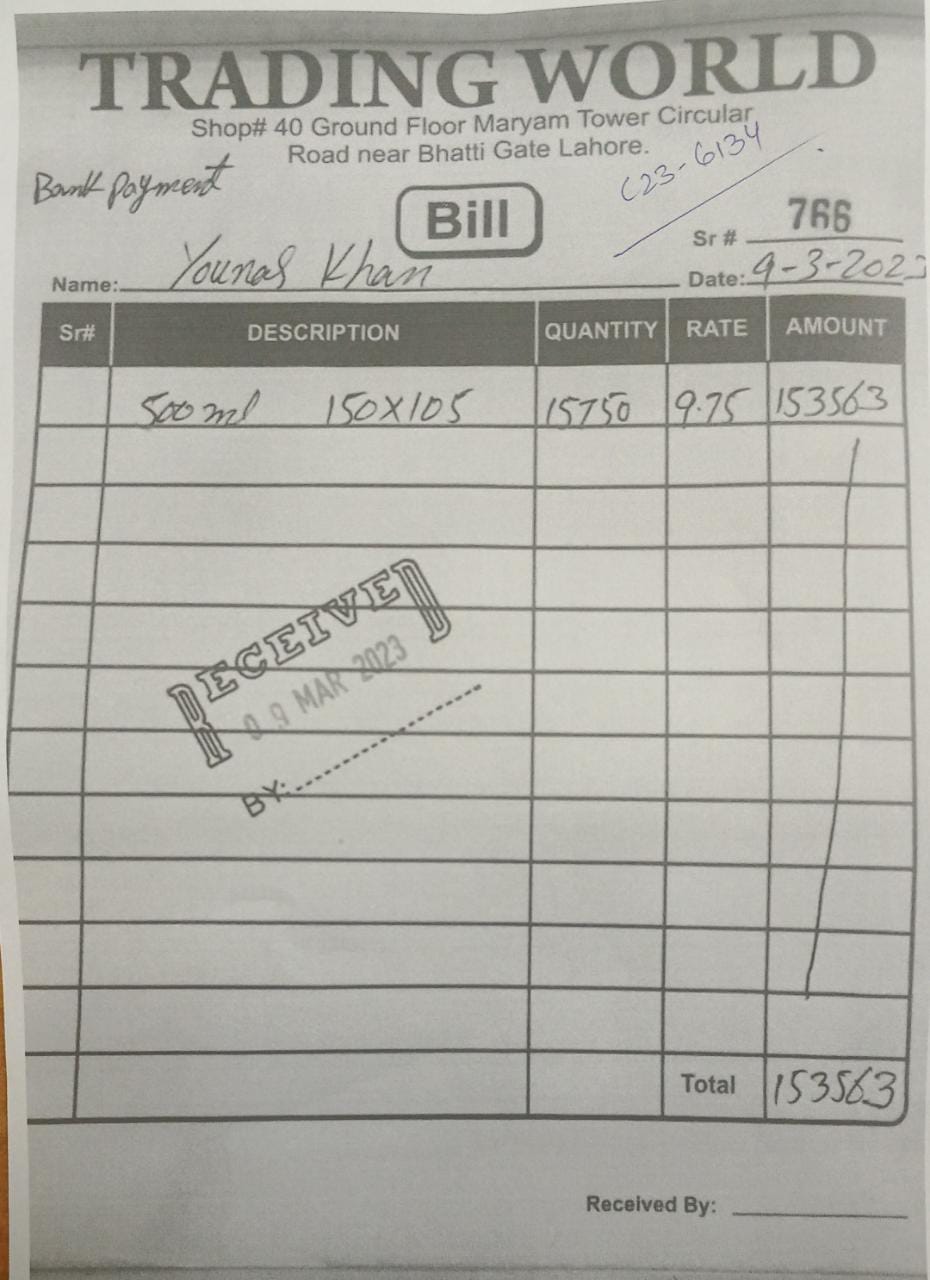 TRADING WORLD
Shop# 40 Ground Floor Maryam Tower Circular
Road near Bhatti Gate Lahore.
Bank Payment
C23-6134
Bill
Sr # 766
Name: Younas Khan
Date: 9-3-2023
Sr# DESCRIPTION QUANTITY RATE AMOUNT
500 ml 150X105 15750 9.75 153563
RECEIVED
09 MAR 2023
BY:
Total 153563
Received By: